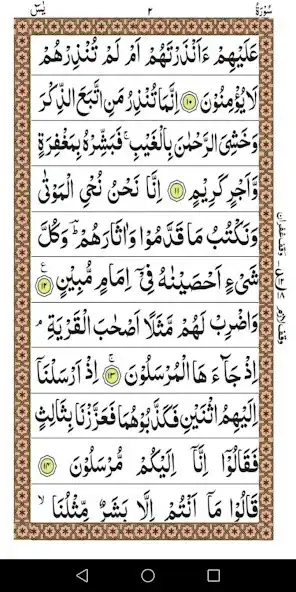 سُوۡرَةُ ٢ يٰسٓ
عَلَيۡهِمۡ ءَاَنۡذَرۡتَهُمۡ اَمۡ لَمۡ تُنۡذِرۡهُمۡ
لَا يُؤۡمِنُوۡنَ ۝۱۰ اِنَّمَا تُنۡذِرُ مَنِ اتَّبَعَ الذِّكۡرَ
وَخَشِىَ الرَّحۡمٰنَ بِالۡغَيۡبِ ۚ فَبَشِّرۡهُ بِمَغۡفِرَةٍ
وَّاَجۡرٍ كَرِيۡمٍ ۝۱۱ اِنَّا نَحۡنُ نُحۡىِ الۡمَوۡتٰى
وَنَكۡتُبُ مَا قَدَّمُوۡا وَاٰثَارَهُمۡ ؕ وَكُلَّ
شَىۡءٍ اَحۡصَيۡنٰهُ فِىۡۤ اِمَامٍ مُّبِيۡنٍ ۝۱۲ ع
وَاضۡرِبۡ لَهُمۡ مَّثَلًا اَصۡحٰبَ الۡقَرۡيَةِ ۘ
اِذۡ جَآءَهَا الۡمُرۡسَلُوۡنَ ۝۱۳ ۚ اِذۡ اَرۡسَلۡنَاۤ
اِلَيۡهِمُ اثۡنَيۡنِ فَكَذَّبُوۡهُمَا فَعَزَّزۡنَا بِثَالِثٍ
فَقَالُوۡۤا اِنَّاۤ اِلَيۡكُمۡ مُّرۡسَلُوۡنَ ۝۱۴
قَالُوۡا مَاۤ اَنۡتُمۡ اِلَّا بَشَرٌ مِّثۡلُنَا ۙ
وقف غفران
وقف لازم